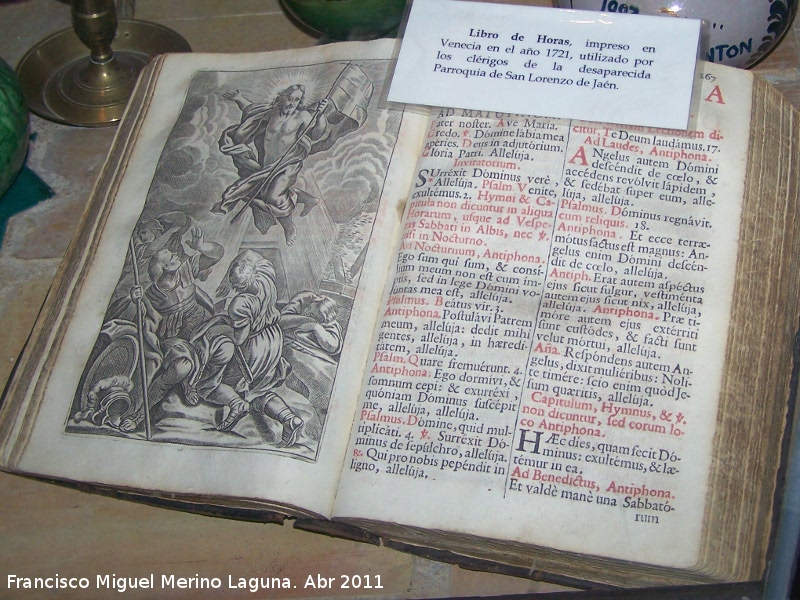 Libro de Horas, impreso en
Venecia en el año 1721, utilizado por
los clérigos de la desaparecida
Parroquia de San Lorenzo de Jaén.
NTON
167
A
AD MATUTINUM
Pater noster. Ave Maria.
Credo. ℣. Dómine lábia mea
apéries. Deus in adjutórium.
Glória Patri. Allelúja.
Invitatorium.
SUrréxit Dóminus verè,
Allelúja. Psalm. Venite,
exultémus. 2. Hymni & Ca-
pitula non dicuntur in aliqua
Horarum, usque ad Vespe-
ras Sabbati in Albis, nec ℣.
Ad Nocturnum, Antiphona.
Ego sum qui sum, & consí-
lium meum non est cum im-
piis, sed in lege Dómini vo-
luntas mea est, allelúja.
Psalmus. Beátus vir. 3.
Antiphona. Postulávi Patrem
meum, allelúja: dedit mihi
gentes, allelúja, in hæredi-
tátem, allelúja.
Psalm. Quare fremuérunt. 4.
Antiphona. Ego dormívi, &
somnum cepi: & exurréxi,
quóniam Dóminus suscépit
me, allelúja, allelúja.
Psalmus. Dómine, quid mul-
tiplicáti. 4. ℣. Surréxit Dó-
minus de sepúlchro, allelúja.
℟. Qui pro nobis pepéndit in
ligno, allelúja.
citur, Te Deum laudámus. 17.
Ad Laudes, Antiphona.
ANgelus autem Dómini
descéndit de cœlo, &
accédens revólvit lápidem,
& sedébat super eum, alle-
lúja, allelúja.
Psalmus. Dóminus regnávit.
cum reliquis. 18.
Antiphona. Et ecce terræ-
mótus factus est magnus: An-
gelus enim Dómini descén-
dit de cœlo, allelúja.
Antiph. Erat autem aspéctus
ejus sicut fulgur, vestiménta
autem ejus sicut nix, allelúja,
allelúja. Antiphona. Præ ti-
móre autem ejus extérriti
sunt custódes, & facti sunt
velut mórtui, allelúja.
Aña. Respóndens autem An-
gelus, dixit muliéribus: Nolí-
te timére: scio enim quòd Je-
sum quæritis, allelúja.
Capitulum, Hymnus, & ℣.
non dicuntur, sed eorum lo-
co Antiphona.
HÆc dies, quam fecit Dó-
minus: exultémus, & læ-
témur in ea.
Ad Benedictus, Antiphona.
Et valdè manè una Sabbató-
rum
Francisco Miguel Merino Laguna. Abr 2011